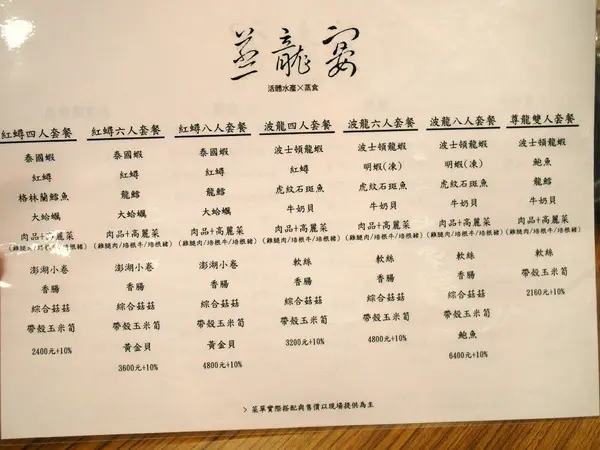 蒸龍宴
活體水產×蒸食
紅蟳四人套餐
泰國蝦
紅蟳
格林蘭鱈魚
大蛤蠣
肉品+高麗菜
澎湖小卷
香腸
綜合菇菇
帶殼玉米筍
2400元+10%
紅蟳六人套餐
泰國蝦
紅蟳
龍鱈
大蛤蠣
肉品+高麗菜
(雞腿肉/培根牛/培根豬)
澎湖小卷
香腸
綜合菇菇
帶殼玉米筍
黃金貝
3600元+10%
紅蟳八人套餐
泰國蝦
紅蟳
龍鱈
大蛤蠣
肉品+高麗菜
(雞腿肉/培根牛/培根豬)
澎湖小卷
香腸
綜合菇菇
帶殼玉米筍
黃金貝
4800元+10%
波龍四人套餐
波士頓龍蝦
紅蟳
虎紋石斑魚
牛奶貝
肉品+高麗菜
(雞腿肉/培根牛/培根豬)
軟絲
香腸
綜合菇菇
帶殼玉米筍
3200元+10%
波龍六人套餐
波士頓龍蝦
明蝦(凍)
虎紋石斑魚
牛奶貝
肉品+高麗菜
(雞腿肉/培根牛/培根豬)
軟絲
香腸
綜合菇菇
帶殼玉米筍
4800元+10%
波龍八人套餐
波士頓龍蝦
明蝦(凍)
虎紋石斑魚
牛奶貝
肉品+高麗菜
(雞腿肉/培根牛/培根豬)
軟絲
香腸
綜合菇菇
帶殼玉米筍
鮑魚
6400元+10%
尊龍雙人套餐
波士頓龍蝦
鮑魚
龍鱈
牛奶貝
肉品+高麗菜
(雞腿肉/培根牛/培根豬)
軟絲
帶殼玉米筍
2160元+10%
> 菜單實際搭配與售價以現場提供為主